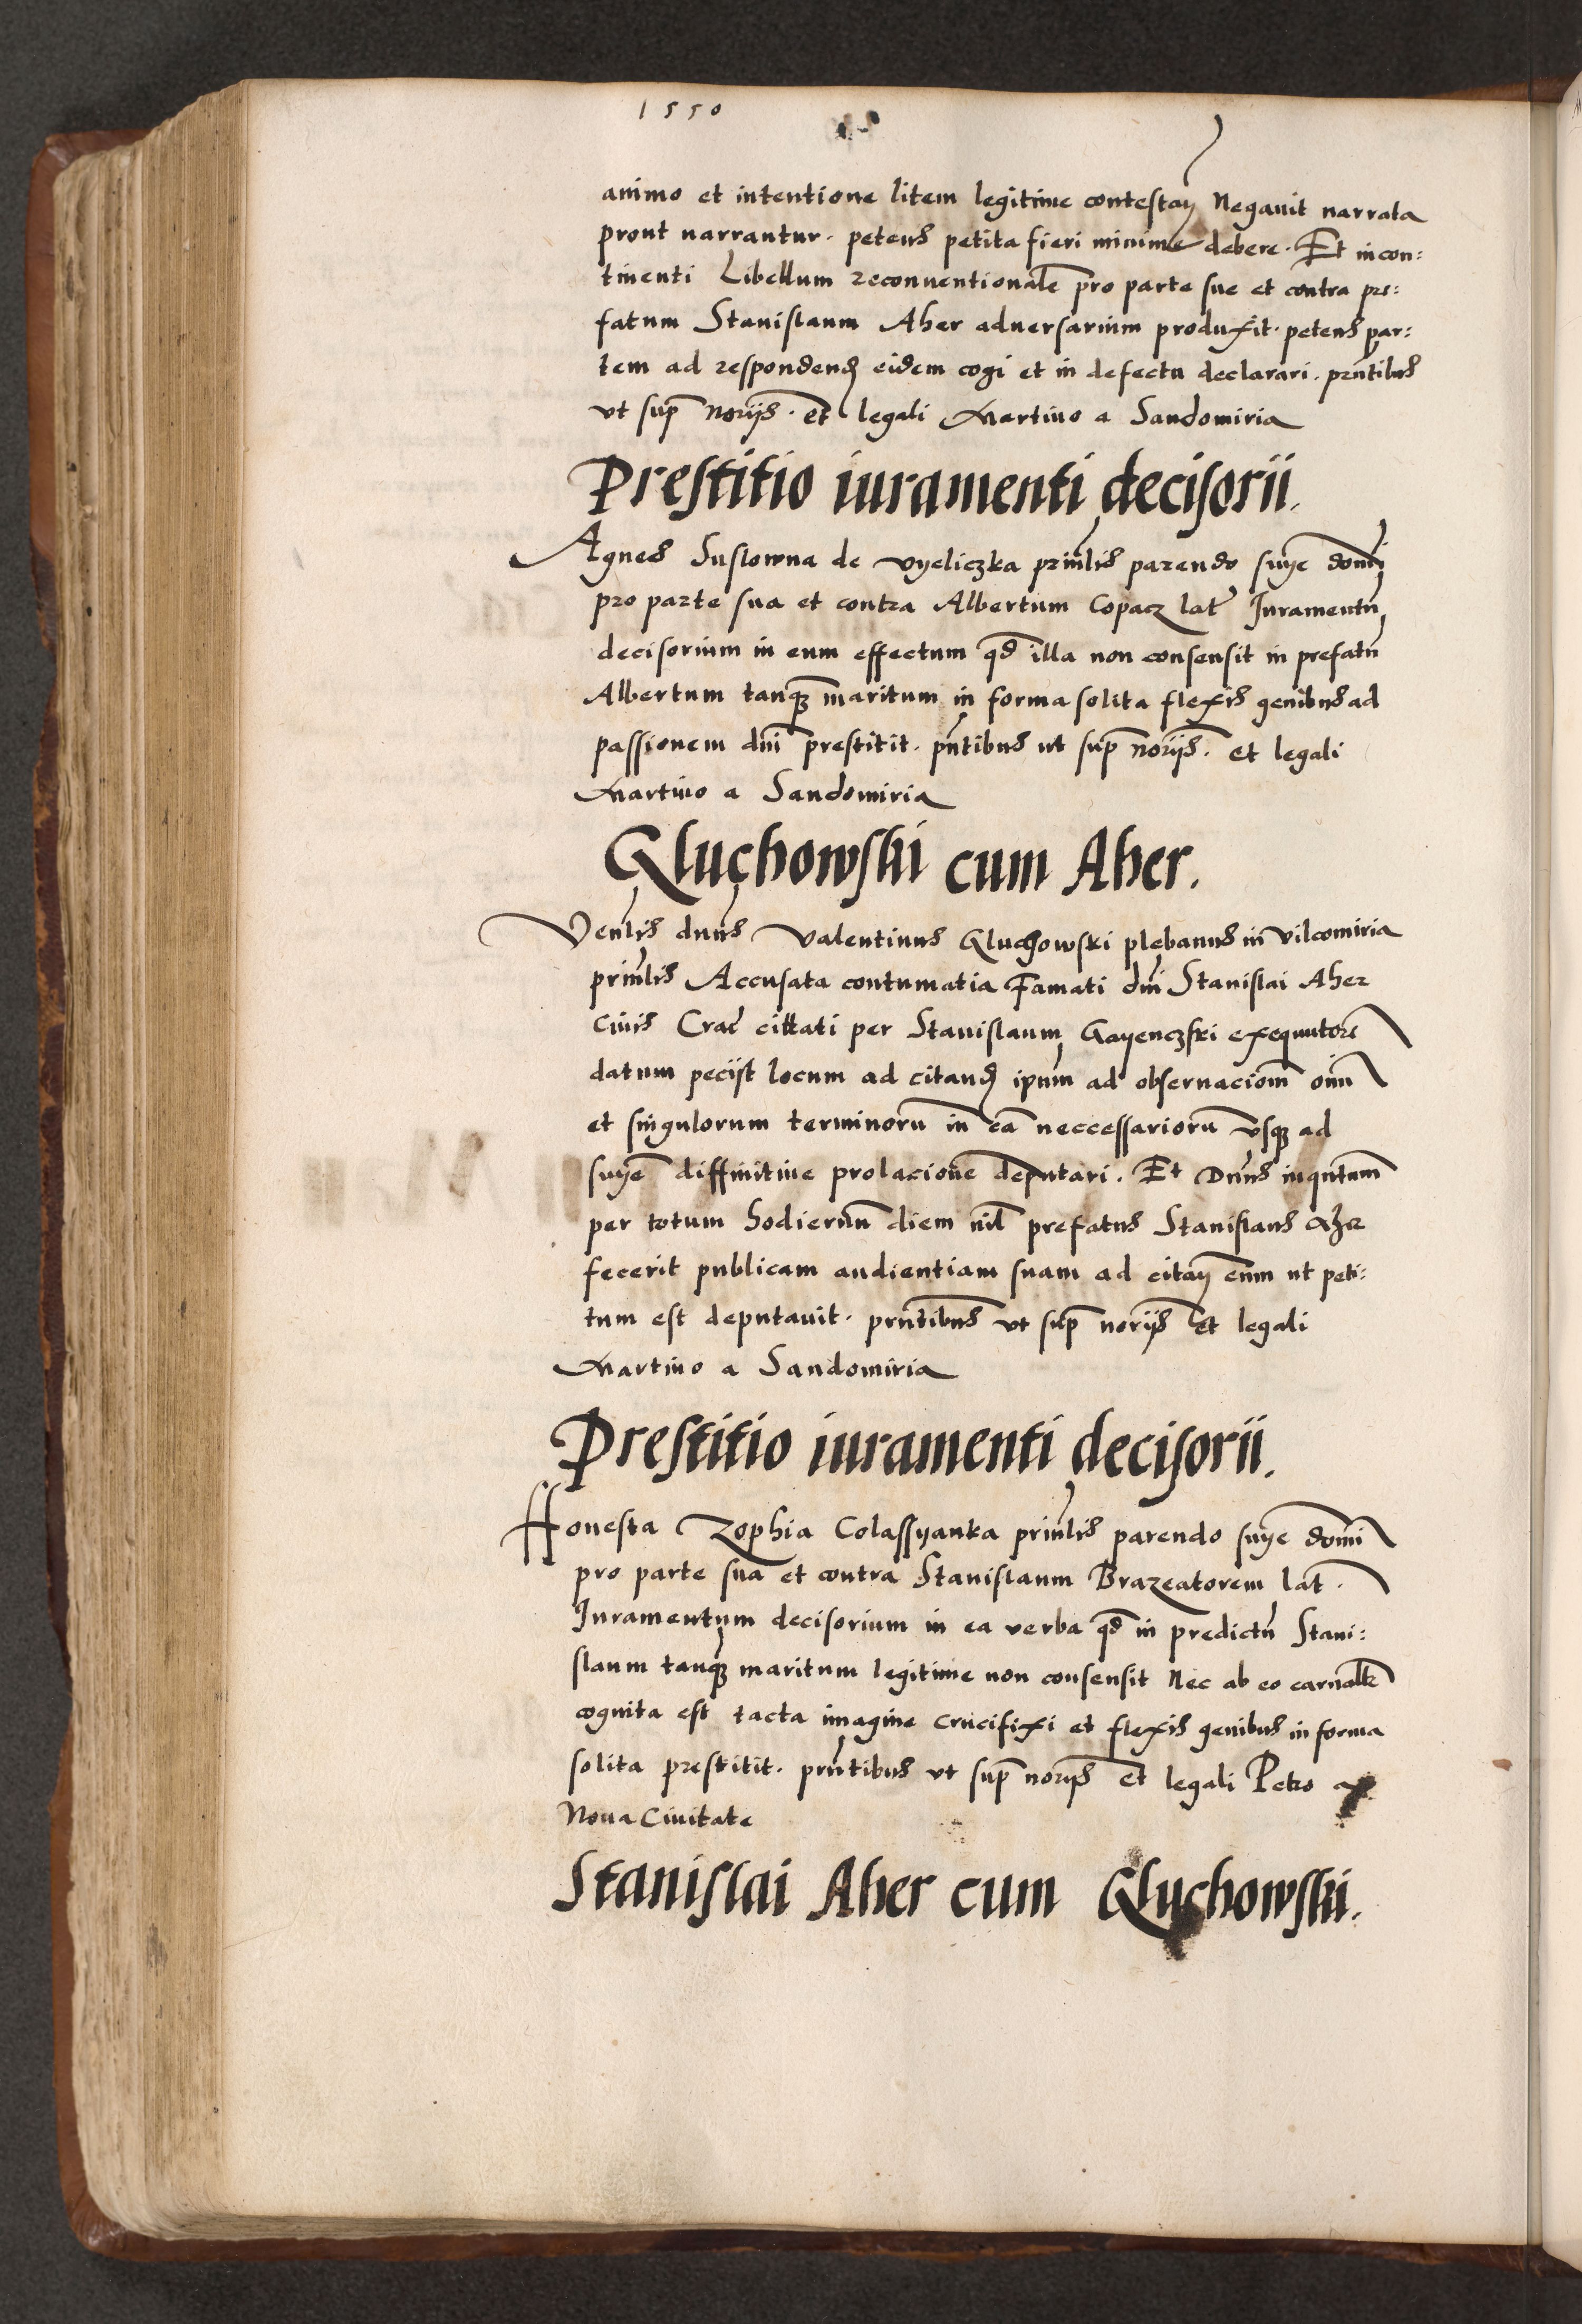 1550
animo et intentione litem legitime contestan Negauit narrata
prout narrantur. petens petita fieri minime debere. Et incon:
tinenti Libellum reconuentionale pro parte sue et contra pre:
fatum Stanislaum Aher aduersarium produxit. petens par:
tem ad respondend eidem cogi et in defectu declarari. prntibus
vt sup noriis. et legali Martino a Sandomiria
Prestitio iuramenti decisorii.
Agnes Suslowna de vyeliczka prinlis parendo snye domi
pro parte sua et contra Albertum Copacz lat Juramentu
decisorium in eum effectum qd illa non consensit in prefatu
Albertum tanq maritum in forma solita flexis genibus ad
passionem dni prestitit. pntibus ut sup noriis. et legali
Martino a Sandomiria
Gluchowski cum Aher.
Venlis dnus Valentinus Gluchowski plebanus in vilcomiria
prinlis Accusata contumatia Famati dni Stanislai Aher
Ciuis Crac cittati per Stanislaum Gayenczski exequutore
datum peciit locum ad citand ipum ad obseruaciom oim
et singulorum terminoru in ca neccessarioru vsq ad
snye diffinitiue prolacione deputari. Et Dnus inquntum
per totum hodiernu diem nil prefatus Stanislaus Aher
fecerit publicam audientiam suam ad citan eum ut peti:
tum est deputauit. prntibus vt sup noriis et legali
Martino a Sandomiria
Prestitio iuramenti decisorii.
Honesta Zophia Colassyanka prinlis parendo snye domi
pro parte sua et contra Stanislaum Brazeatorem lat.
Juramentum decisorium in ea verba qd in predictu Stani:
slaum tanq maritum legitime non consensit Nec ab eo carnalr
cognita est tacta imagine Crucifixi et flexis genibus in forma
solita prestitit. prntibus vt sup noriis et legali Petro a
Noua Ciuitate
Stanislai Aher cum Gluchowski.